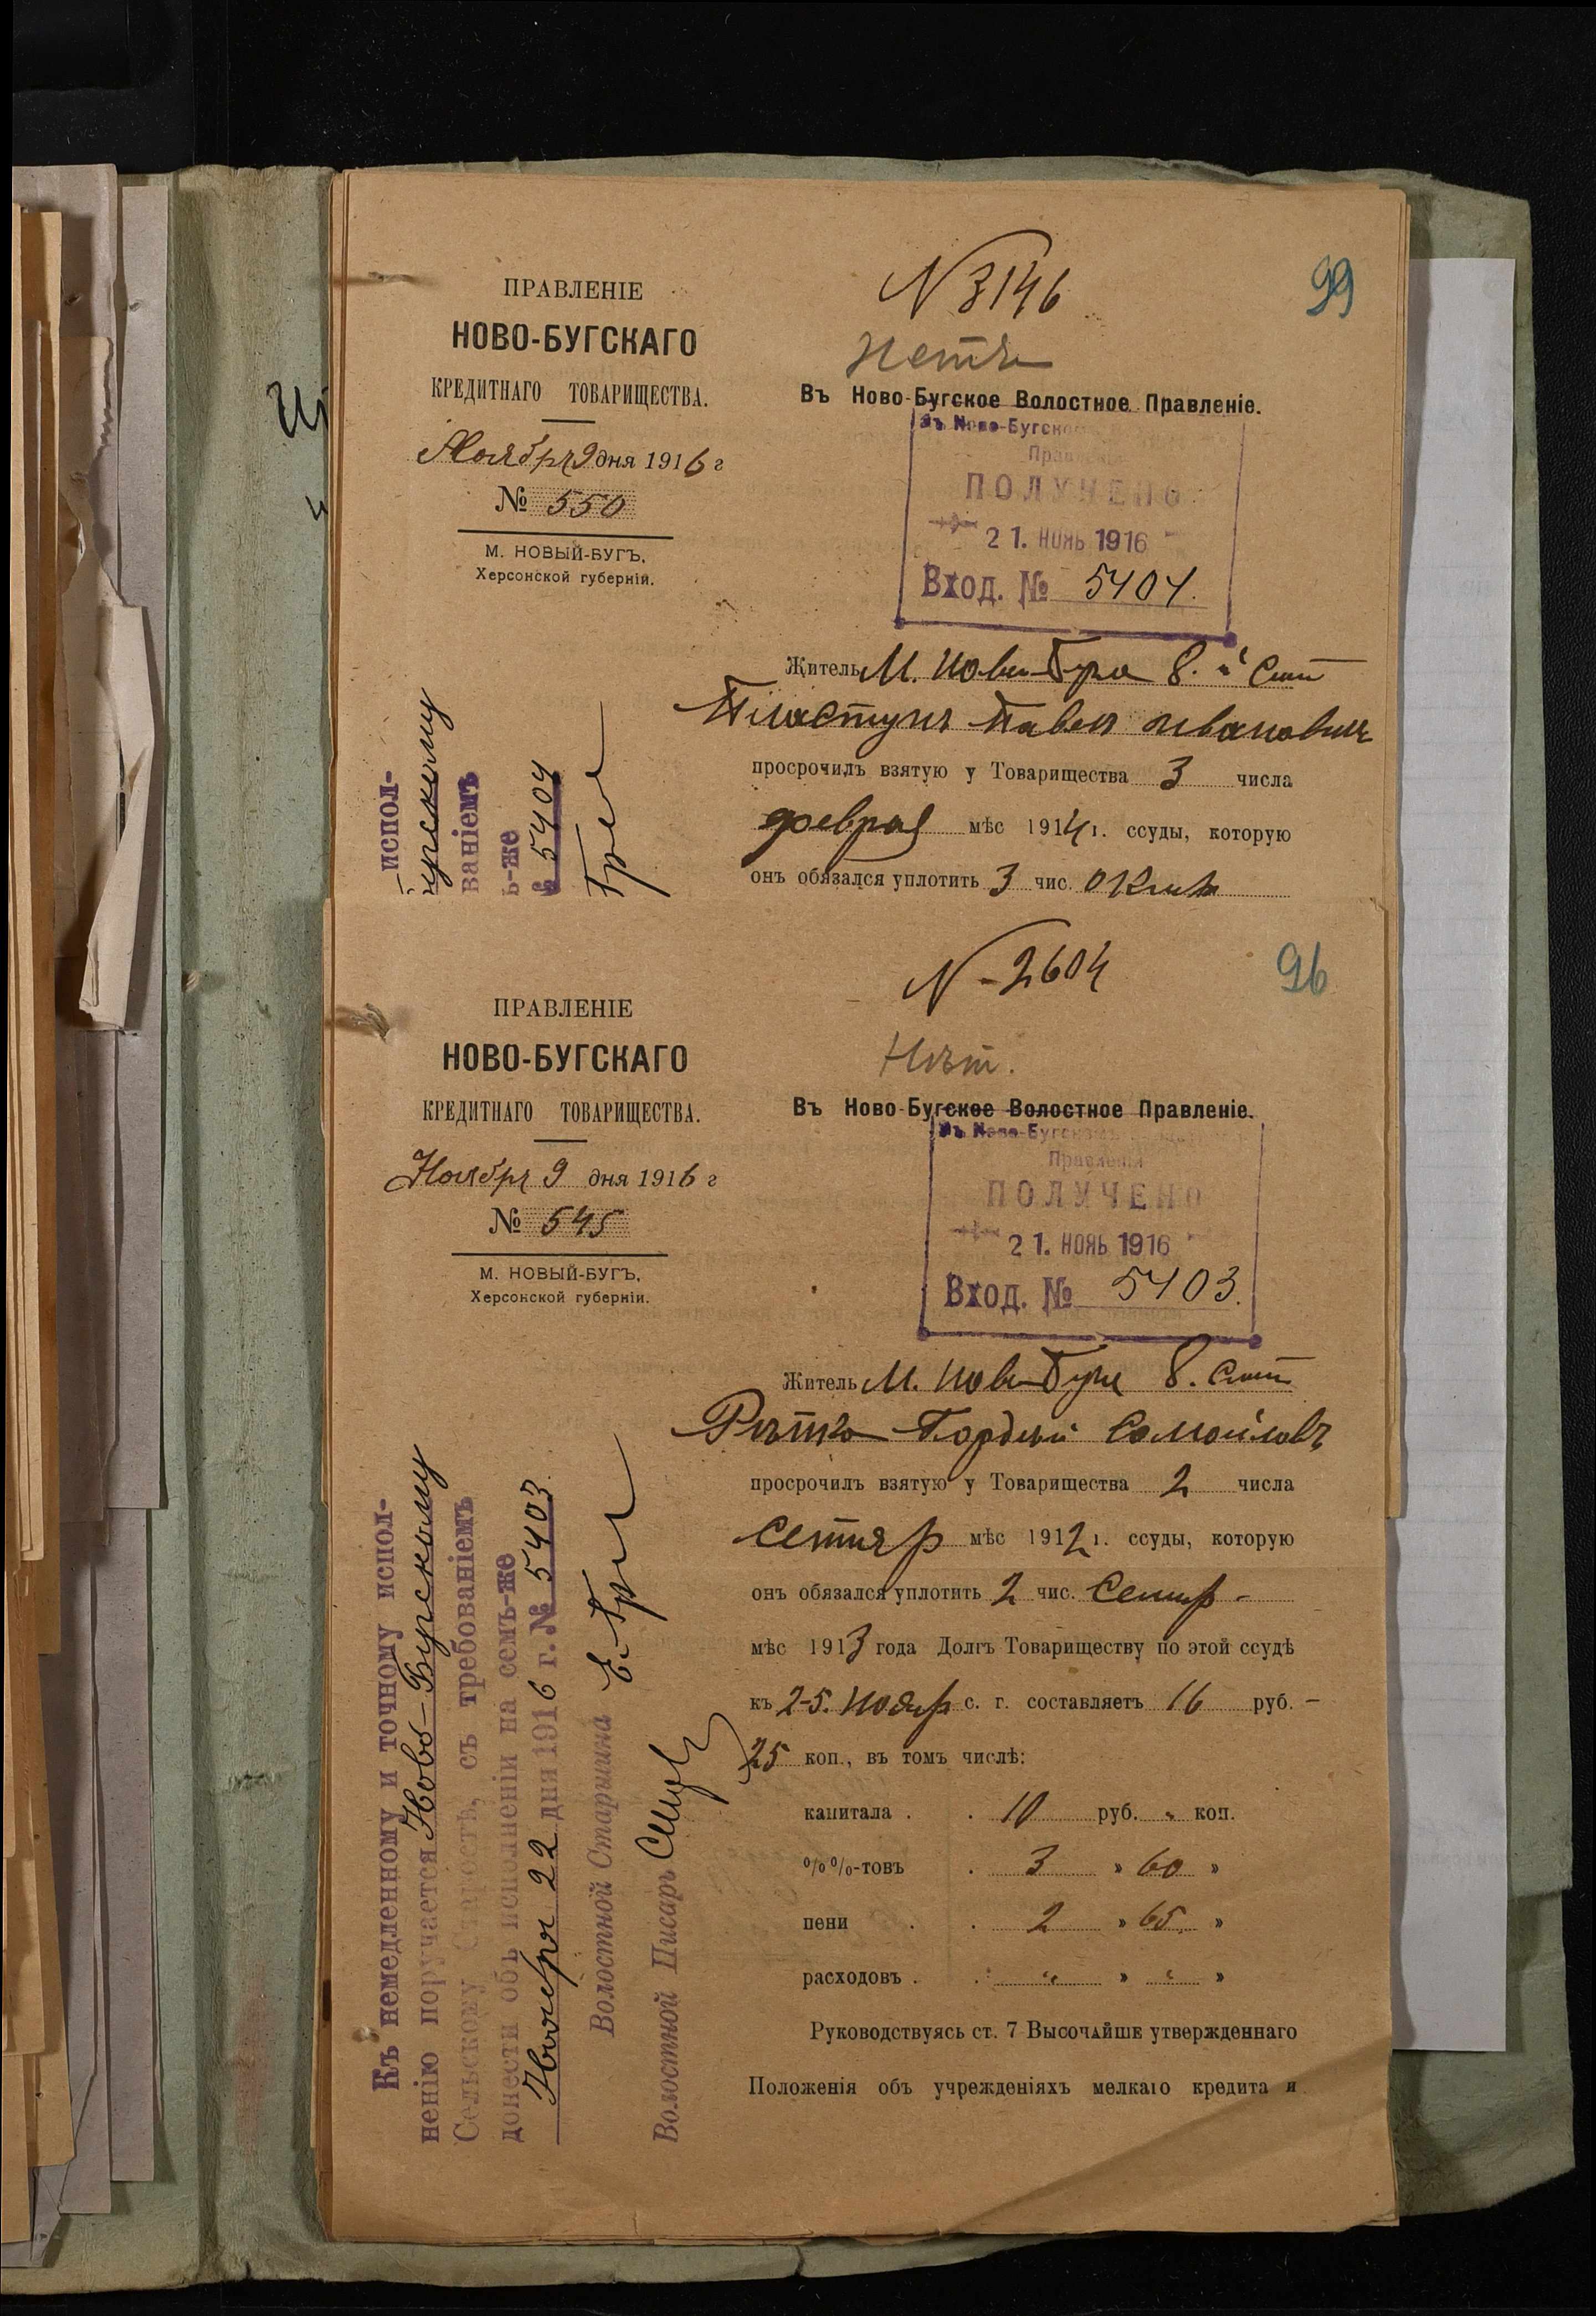 N 3146
99
Нетъ
ПРАВЛЕНІЕ
НОВО-БУГСКАГО
КРЕДИТНАГО ТОВАРИЩЕСТВА.
Ноября 9 дня 1916 г
№ 550
М. НОВЫЙ-БУГЪ,
Херсонской губерніи.
Въ Ново-Бугское Волостное Правленіе.
Въ Ново-Бугско
Правленіи
ПОЛУЧЕНО
21. НОЯЬ 1916
Вход. № 5404.
Житель М. Нов. Буга 8.
Пластунъ Павелъ Ивановичъ
просрочилъ взятую у Товарищества 3 числа
феврал мѣс 1914 г. ссуды, которую
онъ обязался уплотить 3 чис. Октяб
-испол-
угскому
ваніемъ
ь-же
№ 5404
N-2604
96
Нѣт.
ПРАВЛЕНІЕ
НОВО-БУГСКАГО
КРЕДИТНАГО ТОВАРИЩЕСТВА.
Ноября 9 дня 1916 г
№ 545
М. НОВЫЙ-БУГЪ,
Херсонской губерніи.
Въ Ново-Бугское Волостное Правленіе.
Въ Ново-Бугском
Правленіи
ПОЛУЧЕНО
21. НОЯЬ 1916
Вход. № 5403.
Житель М. Нов. Буга 8.
Рѣтко Гордѣй Самойловъ
просрочилъ взятую у Товарищества 2 числа
Сентяр мѣс 1912 г. ссуды, которую
онъ обязался уплотить 2 чис. Сентр-
мѣс 1913 года Долгъ Товариществу по этой ссудѣ
къ 2-5. Ноябр с. г. составляетъ 16 руб. -
25 коп., въ томъ числѣ:
капитала . . 10 руб. „ коп.
%%-товъ . 3 » 60 »
пени . . 2 » 65 »
расходовъ . . „ » „ »
Руководствуясь ст. 7 Высочайше утвержденнаго
Положенія объ учрежденіяхъ мелкаго кредита и
Къ немедленному и точному испол-
ненію поручается Ново-Бугскому
Сельскому Старостѣ, съ требованіемъ
донести объ исполненіи на семъ-же
Ноября 22 дня 1916 г. № 5403
Волостной Старшина
Волостной Писарь